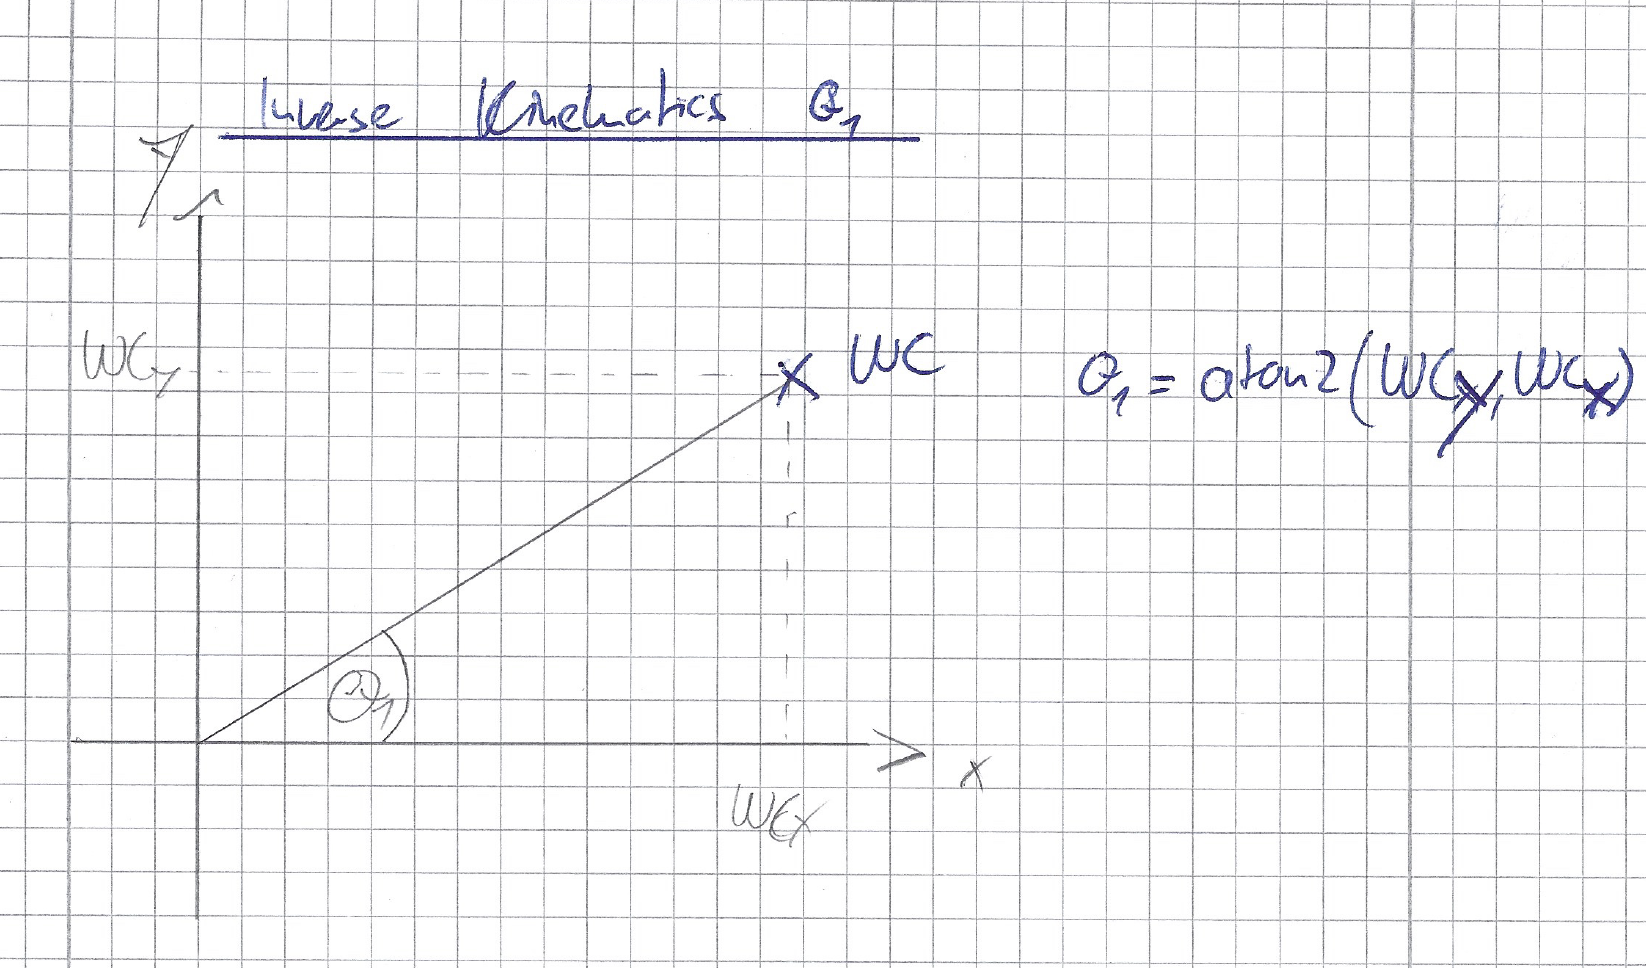 Inverse Kinematics θ₁
y
WCy
WC
θ₁ = atan2(WCy, WCx)
θ₁
x
WCx